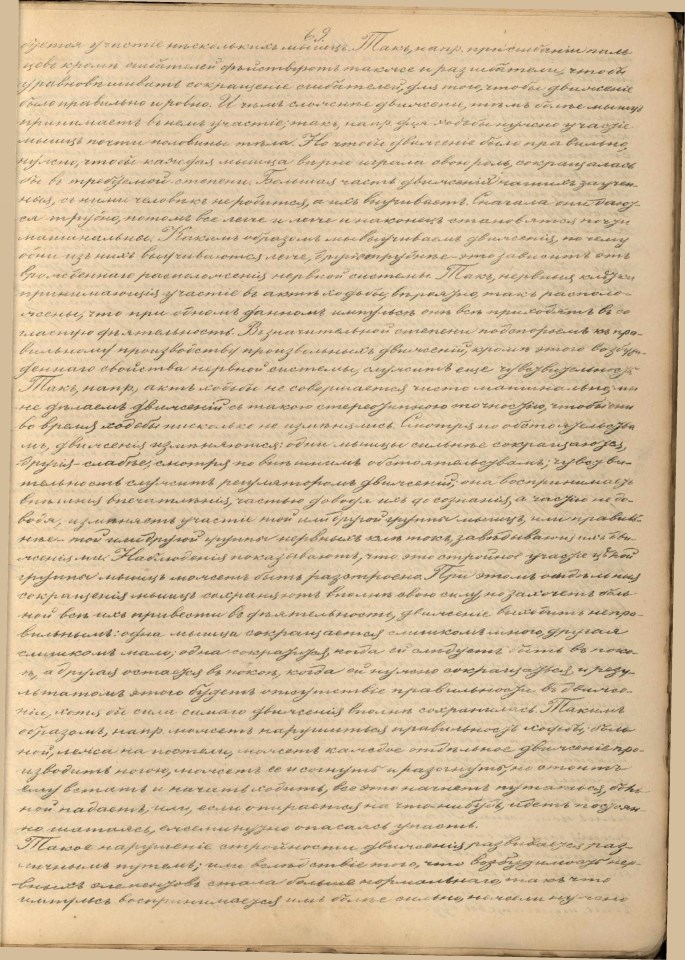 69
буется участіе нѣсколькихъ мышцъ. Такъ, напр. при сгибаніи паль
цевъ кромѣ сгибателей дѣйствуютъ также и разгибатели, чтобы
уравновѣшивать сокращеніе сгибателей, для того, чтобы движеніе
было правильно и ровно. И чѣмъ сложнѣе движеніе, тѣмъ болѣе мышцъ
принимаетъ въ немъ участіе; такъ, напр. для ходьбы нужно участіе
мышцъ почти половины тѣла. Но чтобы движеніе было правильно,
нужно, чтобы каждая мышца вѣрно играла свою роль, сокращалась
бы въ требуемой степени. Большая часть движеній нашихъ заучен-
ныя, съ ними человѣкъ не родится, а ихъ выучиваетъ. Сначала они дают-
ся трудно, потомъ все легче и легче и наконецъ становятся почти
машинальнѣе. Какимъ образомъ мы выучиваемъ движенія, почему
одни изъ нихъ выучиваются легче, другія труднѣе – это зависитъ отъ
врожденнаго расположенія нервной системы. Такъ, нервныя клѣтки
принимающія участіе въ актѣ ходьбы, вѣроятно, такъ располо-
жены, что при одномъ данномъ импульсѣ онѣ всѣ приходятъ въ со
гласную дѣятельность. Въ значительной степени подспорьемъ къ пра-
вильному производству произвольныхъ движеній, кромѣ этого
деннаго свойства нервной системы, служитъ еще чувствительность.
Такъ, напр., актъ ходьбы не совершается чисто машинально, мы
не дѣлаемъ движеній съ такою стереотипною точностію, чтобы они
во время ходьбы нисколько не измѣнялись. Смотря по обстоятельства
мъ, движенія измѣняются: одни мышцы сильнѣе сокращаются,
другія – слабѣе, смотря по внѣшнимъ обстоятельствамъ; чувстви-
тельность служитъ регуляторомъ движеній; она воспринимаетъ
внѣшнія впечатлѣнія, частью доводя ихъ до сознанія, а частію не до-
водя, измѣняетъ участіе той или другой группы мышцъ, или правиль
нѣе – той или другой группы нервныхъ клѣтокъ, завѣдывающихъ дви-
женіями. Наблюденія показываютъ, что это стройное участіе цѣлой
группы мышцъ можетъ быть разстроено. При этомъ отдѣльныя
сокращенія мышцъ сохраняютъ вполнѣ свою силу но захочетъ боль
ной всѣ ихъ привести въ дѣятельность, движеніе выходитъ непра-
вильнымъ: одна мышца сокращается слишкомъ много, другая
слишкомъ мало; одна сокращается, когда ей слѣдуетъ быть въ поко-
ѣ, а другая остается въ покоѣ, когда ей нужно сокращаться и резу-
льтатомъ этого будетъ отсутствіе правильности въ движе-
ніи, хотя бы сила самаго движенія вполнѣ сохранилась. Такимъ
образомъ, напр. можетъ нарушиться правильность ходьбы; боль
ной, лежа на постели, можетъ каждое отдѣльное движеніе про-
изводить ногою, можетъ ее и согнуть и разогнуть; но стоитъ
ему встать и начать ходить, все это начнетъ путаться, боль
ной падаетъ, или, если опирается на что нибудь, идетъ постоян-
но шатаясь, ежесекундно опасаясь упасть.
Такое нарушеніе стройности движенія развивается раз-
личнымъ путемъ; или вслѣдствіе того, что возбудимость нер-
вныхъ элементовъ стала больше нормальнаго, такъ что
импульсъ воспринимается имъ болѣе сильно, нежели нужно